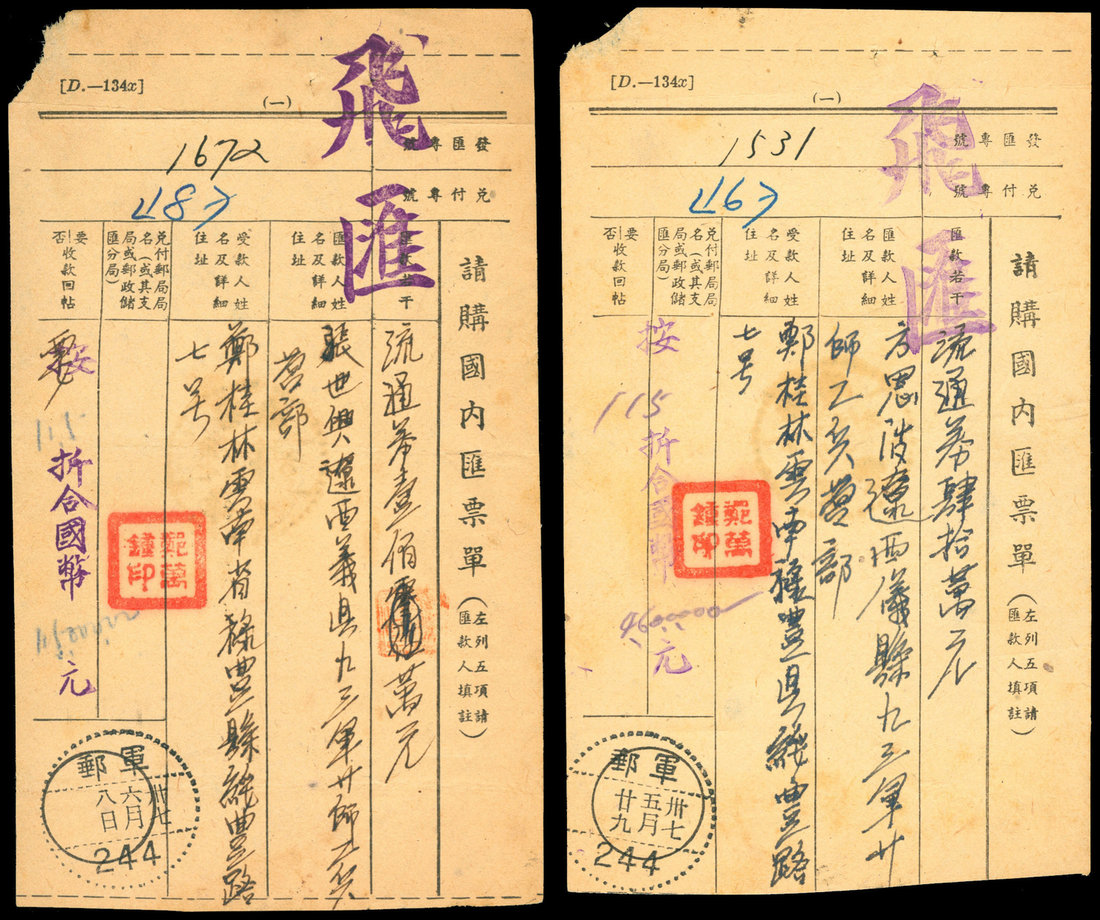 [D.—134x]
(一)
飛匯
發匯專號
1672
兌付專號
483
請購國內匯票單(左列五項請匯款人填註)
匯款若干
流通券壹佰
萬元
匯款人姓名及詳細住址
張世興遼西義县九三軍廿師工兵
營部
受款人姓名及詳細住址
鄭桂林雲南省祿豐縣
豐路
七号
兌付郵局局名(或其支局或郵政儲匯分局)
鄭萬鍾印
要否收款回帖
按
115
折合國幣
元
軍郵
卅七
六月
八日
244
[D.—134x]
(一)
飛匯
發匯專號
1531
兌付專號
463
請購國內匯票單(左列五項請匯款人填註)
匯款若干
流通券肆拾萬元
匯款人姓名及詳細住址
方恩波遼西義縣九三軍廿
師工兵營部
受款人姓名及詳細住址
鄭桂林雲南祿豊县
豊路
七号
兌付郵局局名(或其支局或郵政儲匯分局)
鄭萬鍾印
要否收款回帖
按
115
折合國幣
4600000
元
軍郵
卅七
五月
廿九
244